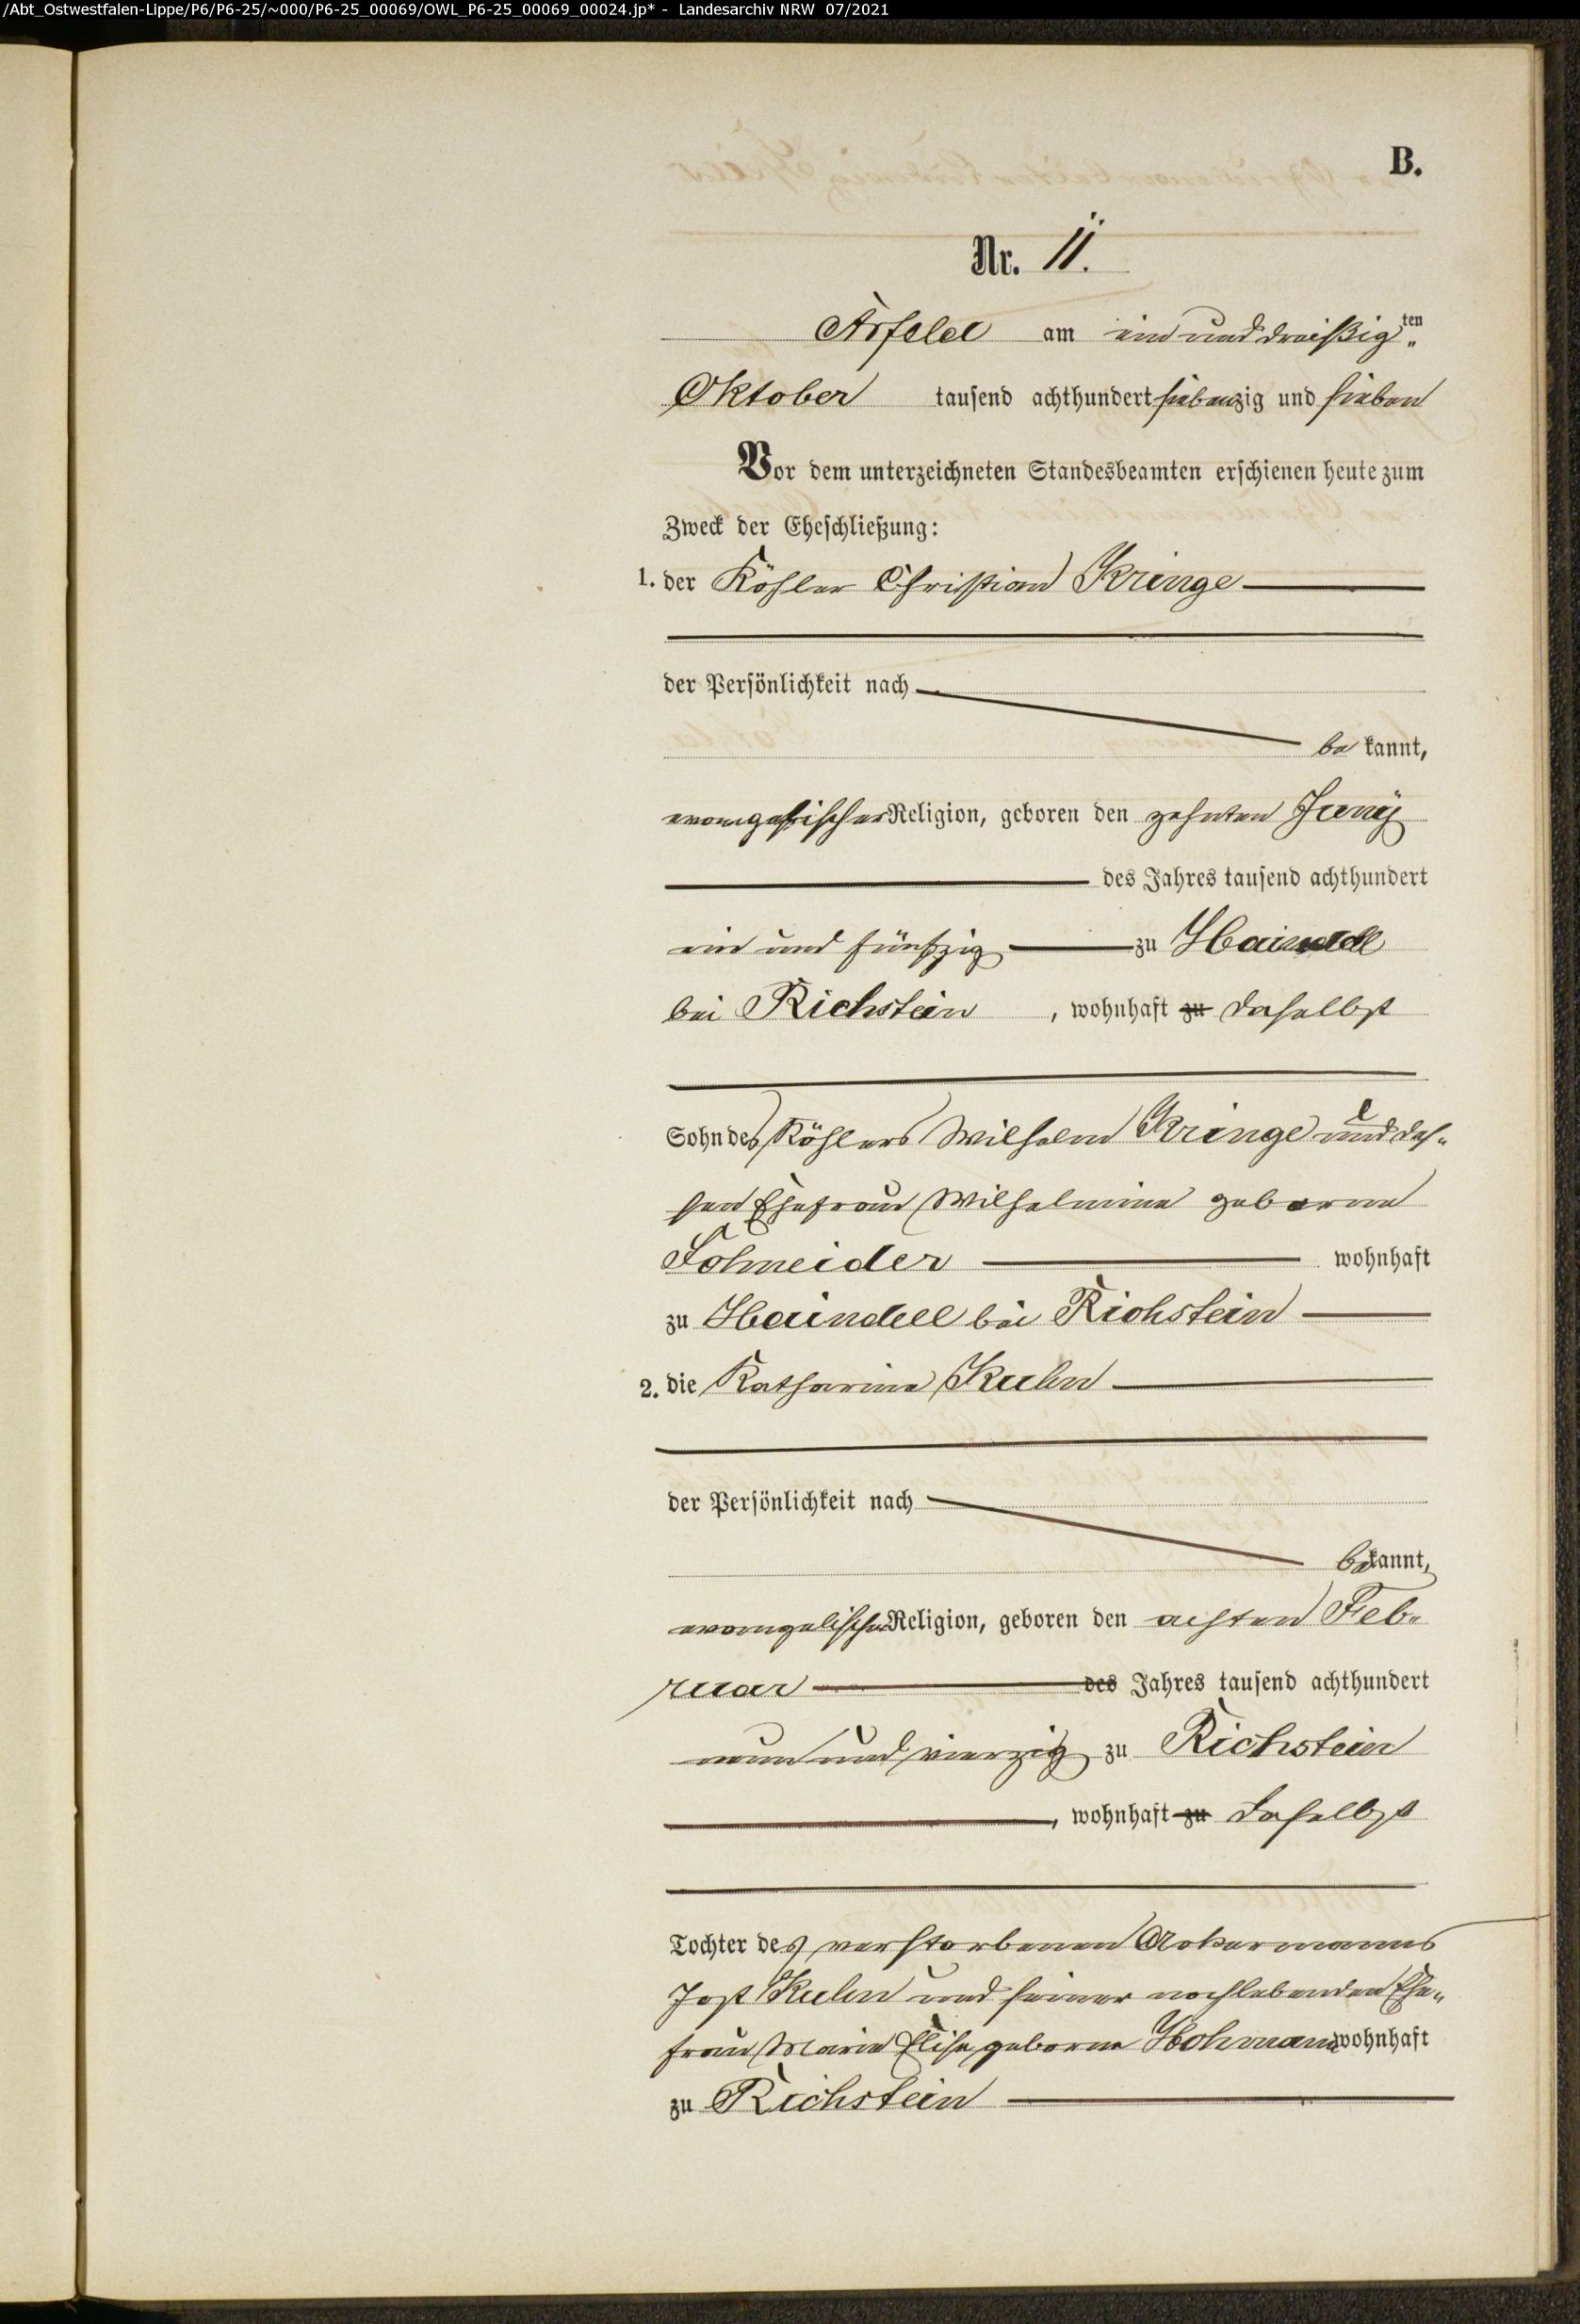 /Abt_Ostwestfalen-Lippe/P6/P6-25/~000/P6-25_00069/OWL_P6-25_00069_00024.jp* - Landesarchiv NRW 07/2021
B.
Nr. 11.
Arfeld am ein und dreißig ten
Oktober tausend achthundert siebenzig und sieben
Vor dem unterzeichneten Standesbeamten erschienen heute zum
Zweck der Eheschließung:
1. der Köhler Christian Kringe
der Persönlichkeit nach
be kannt,
evangelischer Religion, geboren den zehnten Juny
des Jahres tausend achthundert
ein und fünfzig zu Haindell
bei Richstein, wohnhaft zu daselbst
Sohn des Köhlers Wilhelm Kringel und des-
sen Ehefrau Wilhelmine geborne
Schneider wohnhaft
zu Haindell bei Richstein
2. die Katharine Kuhn
der Persönlichkeit nach
bekannt,
evangelischer Religion, geboren den achten Feb-
ruar des Jahres tausend achthundert
neun und vierzig zu Richstein
, wohnhaft zu daselbst
Tochter des verstorbenen Ackermanns
Jost Kuhn und seiner nochlebenden Ehe-
frau Marie Elise geborne Hohmann wohnhaft
zu Richstein